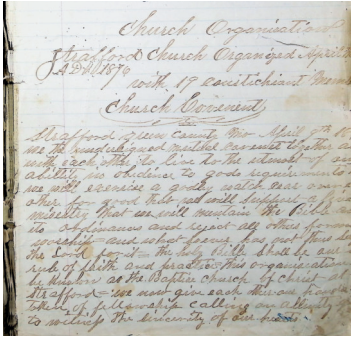 Church Organisation
Strafford Church Organized April
AD 1879
with 19 constichient Mem
Church Covenent
Strafford Green County Mo April 9th 18
we the undersigned mutual covenent together a
with each other to live to the utmost of our
ability in obedience to gods requirements
we will exersise a godly watch care over e
other for good that we will support a
ministry that we will maintain the Bible
its ordinances and reject all other forms
worship and what soever has not thus
the Lord for it the holy bible shall be our
rule of faith and practice this organisation
be known as the Baptice church of Christ
Strafford we now give each other our hand
token of fellowship calling on
to witness the sincerity of our